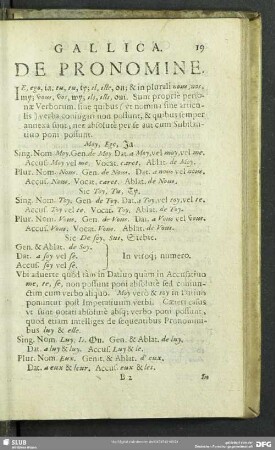 GALLICA. 19
DE PRONOMINE.
IE, ego, tu, eu, ty; il, elle, on; & in plurali nous, uns,
my; vous, vos, wy; ils, elles, oni. Sunt propriè perso-
næ Verborum, sine quibus (ut nomina sine articu-
lis) verba conjugari non possunt, & quibus semper
annexa sunt, nec absolutè per se aut cum Substan-
tivo poni possunt.
Moy, Ego, Ja
Sing. Nom. Moy. Gen. de Moy Dat. a Moy, vel moy, vel me.
Accus. Moy vel me. Vocat. caret. Ablat. de Moy.
Plur. Nom. Nous. Gen. de Nous. Dat. a nous vel nous.
Accus. Nous. Vocat. caret. Ablat. de Nous.
Sic Toy, Tu, Ty.
Sing. Nom. Toy. Gen. de Toy. Dat. a Toy, vel toy, vel te.
Accus. Toy vel te. Vocat. Toy. Ablat. de Toy.
Plur. Nom. Vous. Gen. de Vous. Dat. a Vous vel vous.
Accus. Vous. Vocat. Vous. Ablat. de Vous.
Sic De soy, Sui,
Gen. & Ablat. de Soy.
Dat. a soy vel se. In utroq; numero.
Accus. soy vel se.
Ubi adverte quod tam in Dativo quàm in Accusativo
me, te, se, non possunt poni absolutè sed conjun-
ctim cum verbo aliquo. Moy verò & toy in Dativo
ponuntur post Imperativum verbi. Cæteri casus
ut sunt notati absolutè absq; verbo poni possunt,
quod etiam intelliges de sequentibus Pronomini-
bus luy & elle.
Sing. Nom. Luy. Is. On. Gen. & Ablat. de luy.
Dat. a luy & luy. Accus. Luy & le.
Plur. Nom. Eux. Genit. & Ablat. d'eux.
Dat. a eux & leur. Accus. eux & les.
B 2 In